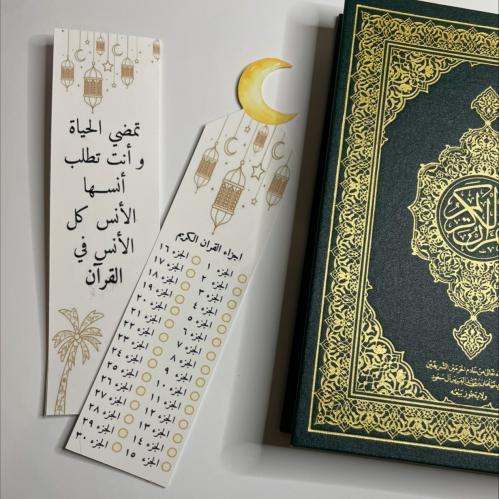 تمضي الحياة
و أنت تطلب
أنسها
الأنس كل
الأنس في
القرآن
اجزاء القرآن الكريم
الجزء ١
الجزء ٢
الجزء ٣
الجزء ٤
الجزء ٥
الجزء ٦
الجزء ٧
الجزء ٨
الجزء ٩
الجزء ١٠
الجزء ١١
الجزء ١٢
الجزء ١٣
الجزء ١٤
الجزء ١٥
الجزء ١٦
الجزء ١٧
الجزء ١٨
الجزء ١٩
الجزء ٢٠
الجزء ٢١
الجزء ٢٢
الجزء ٢٣
الجزء ٢٤
الجزء ٢٥
الجزء ٢٦
الجزء ٢٧
الجزء ٢٨
الجزء ٢٩
الجزء ٣٠